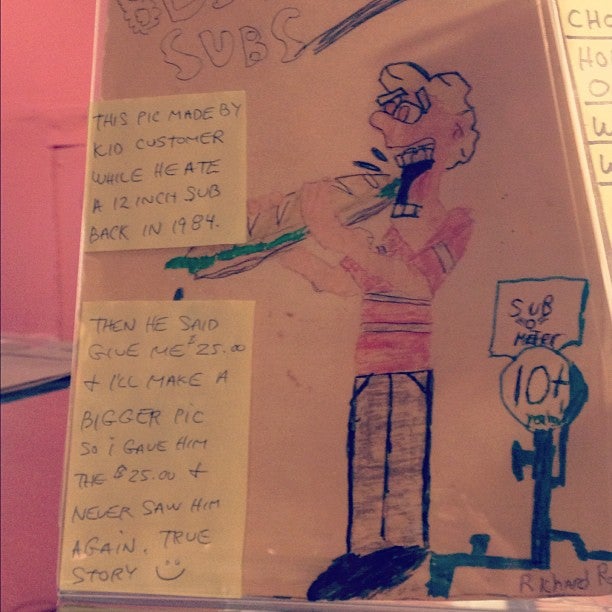 SUBS
THIS PIC MADE BY
KID CUSTOMER
WHILE HE ATE
A 12 INCH SUB
BACK IN 1984.
THEN HE SAID
GIVE ME $25.00
+ I'LL MAKE A
BIGGER PIC
SO I GAVE HIM
THE $25.00 +
NEVER SAW HIM
AGAIN. TRUE
STORY
SUB
O
METER
10+
Richard R
CHO
HO